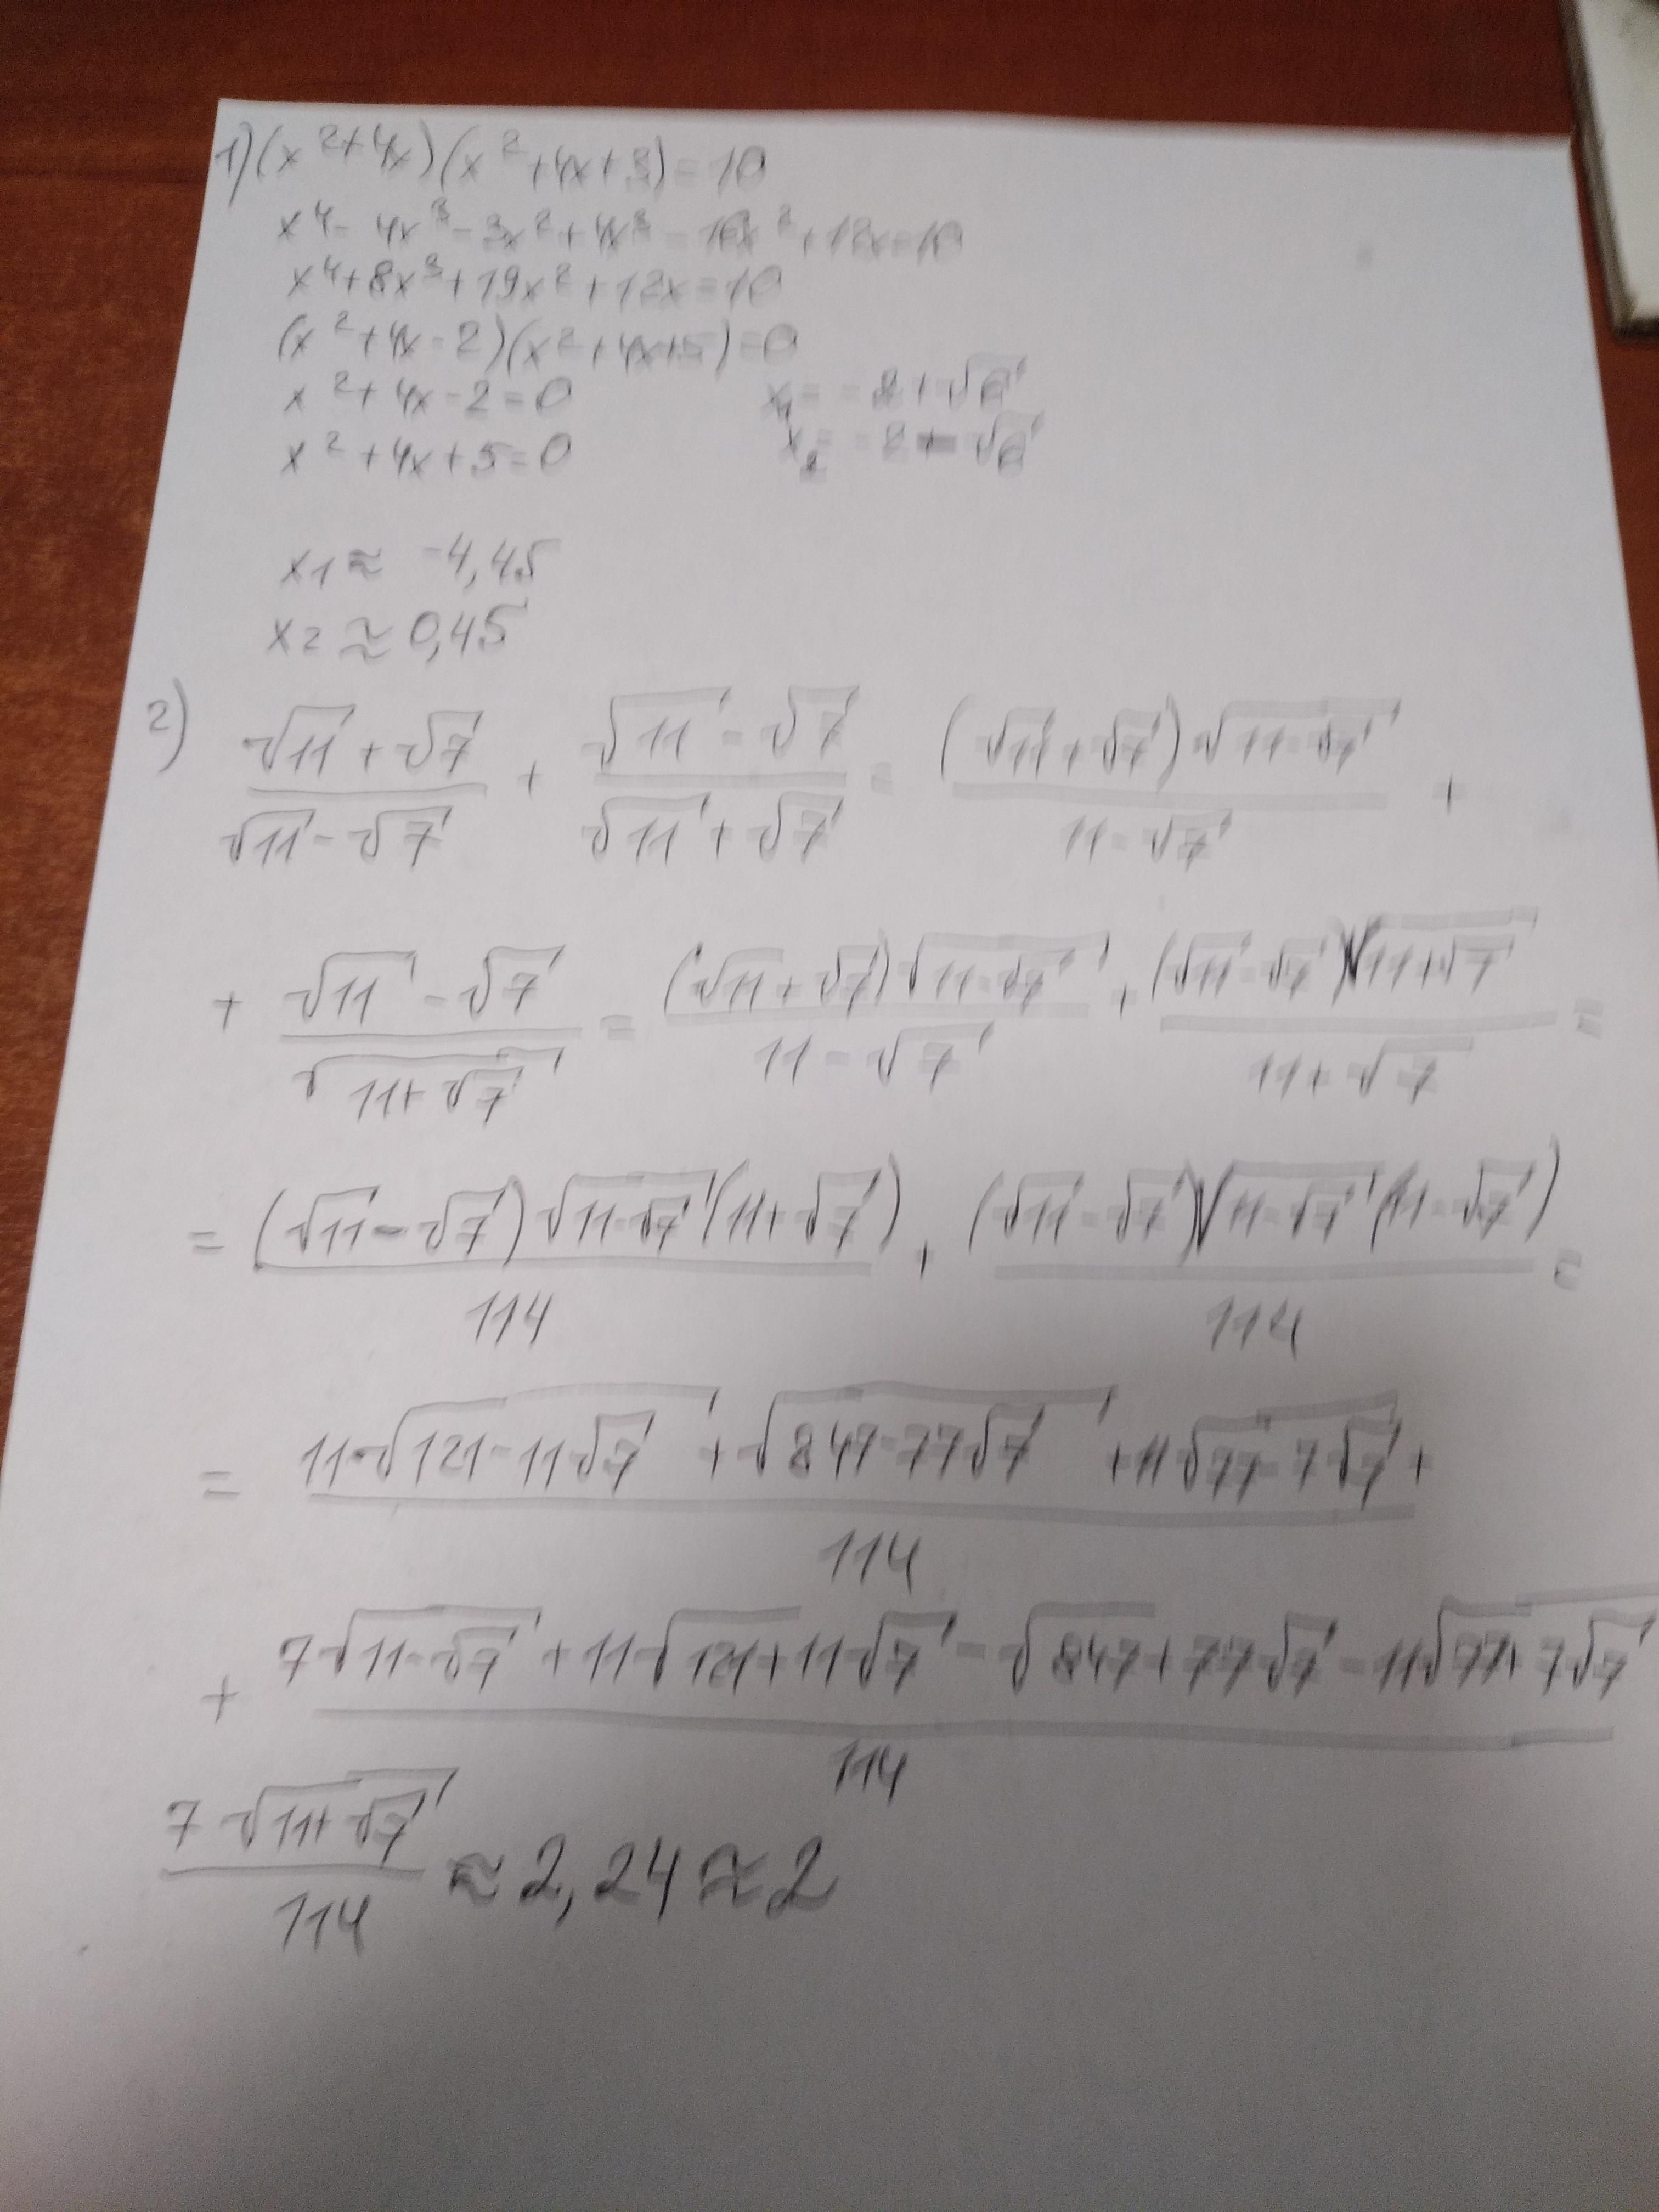 1) (x² + 4x)(x² + 4x + 3) = 10
x⁴ - 4x³ - 3x² + 4x³ - 16x² + 12x = 10
x⁴ + 8x³ + 19x² + 12x = 10
(x² + 4x - 2)(x² + 4x + 5) = 0
x² + 4x - 2 = 0 x₁ = -2 + √6
x² + 4x + 5 = 0 x₂ = -2 - √6
x1 ≈ -4,45
x2 ≈ 0,45
2) (√11 + √7)/(√11 - √7) + (√11 - √7)/(√11 + √7) = ((√11 + √7)·√(11 - √7))/(11 - √7) +
+ (√11 - √7)/√(11 + √7) = ((√11 + √7)√(11 - √7))/(11 - √7) + ((√11 - √7)√(11 + √7))/(11 + √7) =
= ((√11 - √7)√(11 - √7)(11 + √7))/114 + ((√11 - √7)√(11 - √7)(11 - √7))/114 =
= (11·√(121 - 11√7) + √(847 - 77√7) + 11√(77 - 7√7) +)/114
+ (7√(11 - √7) + 11√(121 + 11√7) - √(847 + 77√7) - 11√(77 + 7√7))/114
7√(11 + √7)/114 ≈ 2,24 ≈ 2